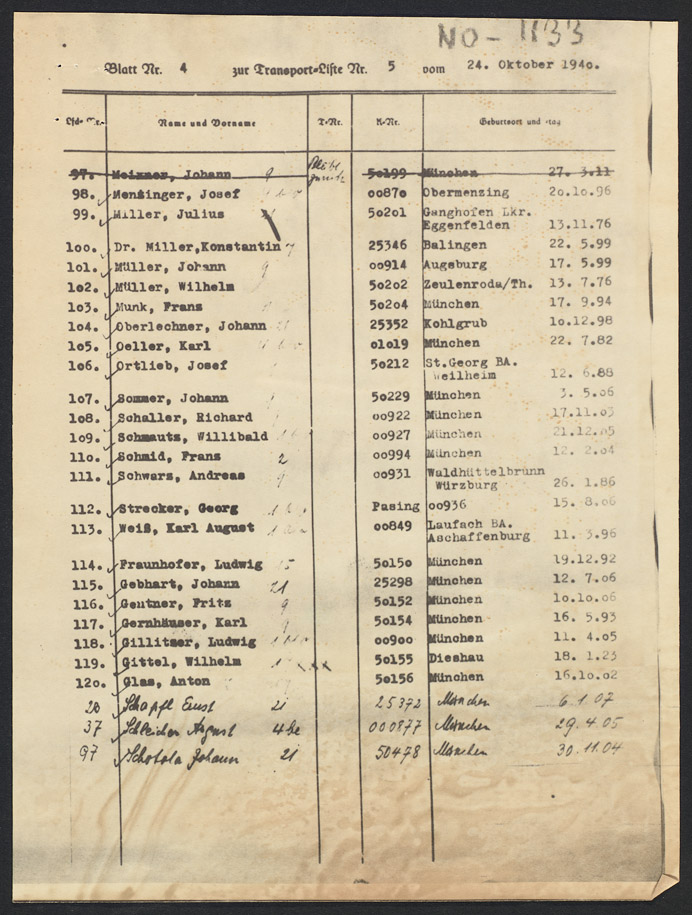 NO - 1133
Blatt Nr. 4 zur Transport-Liste Nr. 5 vom 24. Oktober 1940.
Lfd. Nr. Name und Vorname T-Nr. K-Nr. Geburtsort und -tag
97. Meixner, Johann 9 50199 München 27. 3.11
98. Menzinger, Josef 00870 Obermenzing 20.10.96
99. Miller, Julius 50201 Ganghofen Lkr.
Eggenfelden 13.11.76
100. Dr. Miller,Konstantin 7 25346 Balingen 22. 5.99
101. Müller, Johann 9 00914 Augsburg 17. 5.99
102. Müller, Wilhelm 50202 Zeulenroda/Th. 13. 7.76
103. Munk, Franz 50204 München 17. 9.94
104. Oberlechner, Johann 25352 Kohlgrub 10.12.98
105. Oeller, Karl 01019 München 22. 7.82
106. Ortlieb, Josef 50212 St.Georg BA.
Weilheim 12. 6.88
107. Sommer, Johann 50229 München 3. 5.06
108. Schaller, Richard 00922 München 17.11.03
109. Schmauts, Willibald 00927 München 21.12.05
110. Schmid, Franz 2 00994 München 12. 2.04
111. Schwarz, Andreas 9 00931 Waldhüttelbrunn
Würzburg 26. 1.86
112. Strecker, Georg Pasing 00936 15. 8.06
113. Weiß, Karl August 00849 Laufach BA.
Aschaffenburg 11. 3.96
114. Fraunhofer, Ludwig 15 50150 München 19.12.92
115. Gebhart, Johann 21 25298 München 12. 7.06
116. Gentner, Fritz 9 50152 München 10.10.06
117. Gernhäuser, Karl 9 50154 München 16. 5.93
118. Gillitzer, Ludwig 00900 München 11. 4.05
119. Gittel, Wilhelm xxx 50155 Dieshau 18. 1.23
120. Glas, Anton 50156 München 16.10.02
28 Schapfl Ernst 21 25372 München 6.1.07
37 Schleicher August 4be 000877 München 29.4.05
97 Schotola Johann 21 50478 München 30.11.04